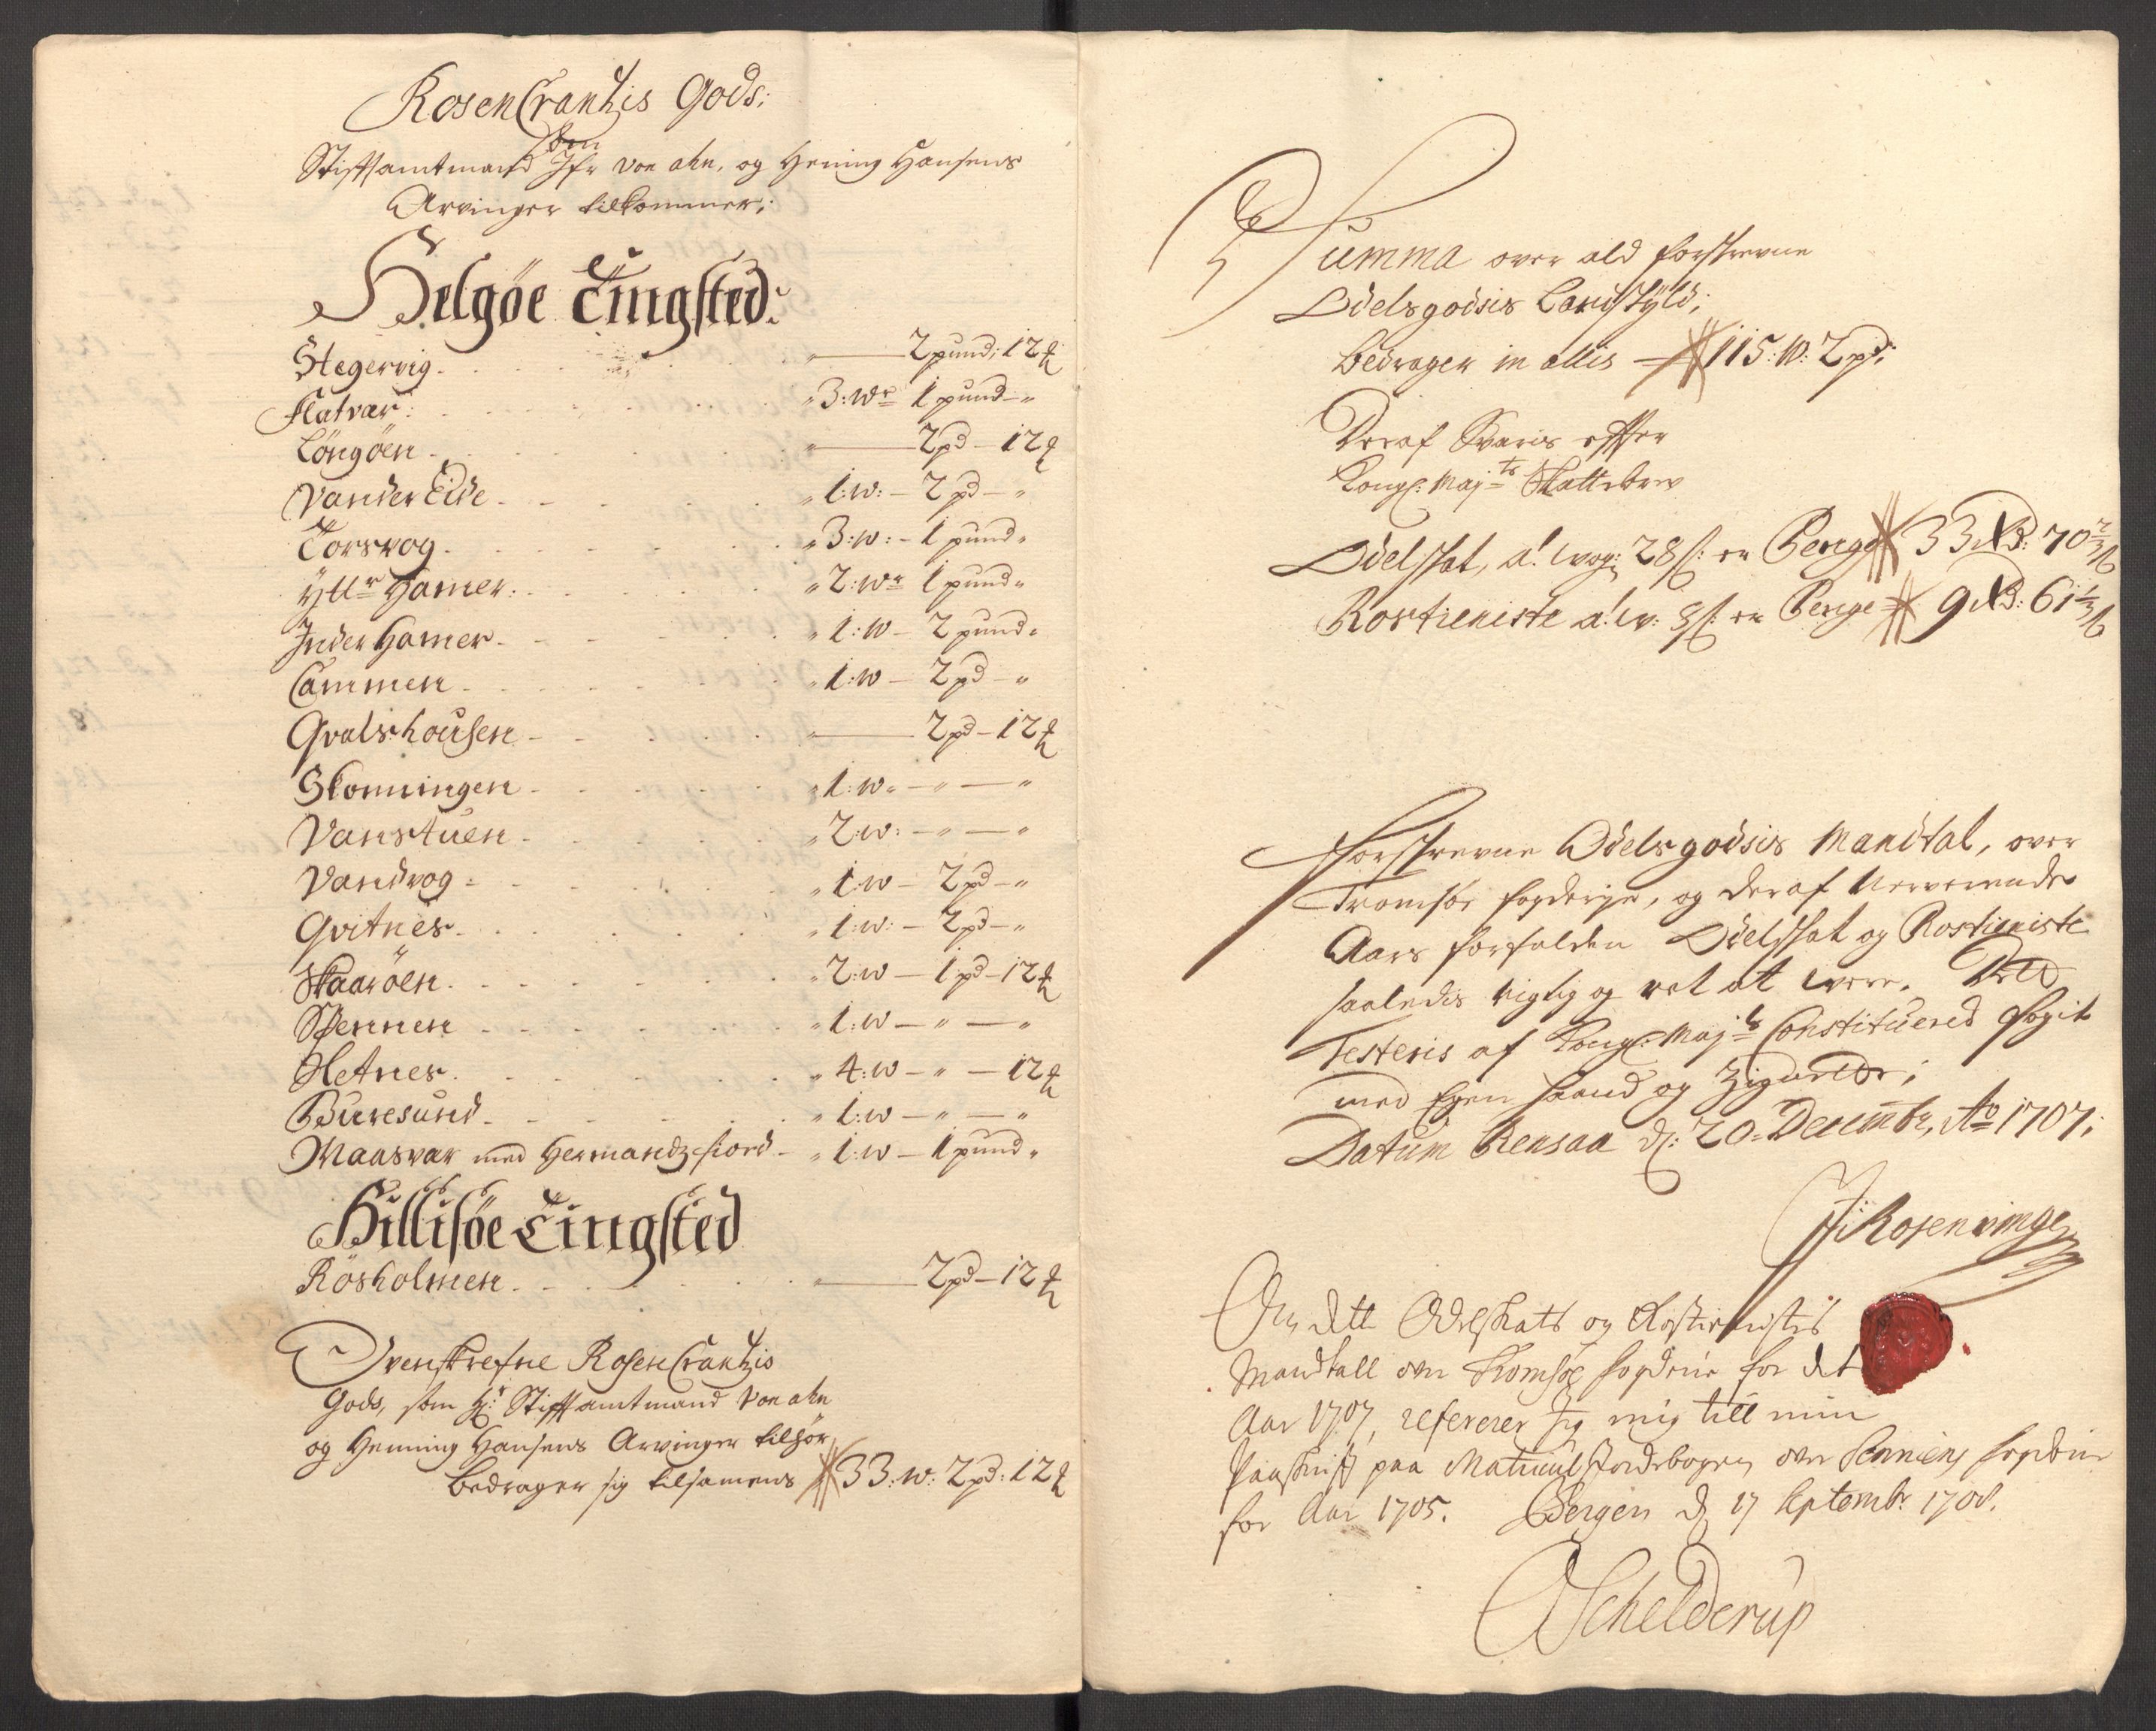 RosenCrantzis Gods;
som
Stiftsamtmand Hr von ahn, og Hening Hansens
Arvinger tilkommer;
Helgöe Tingsted:
Stegervig. 2 pund; 12 ℔
Flatvær: 3: wr 1 pund - "
Löngöen. 2 pd - 12 ℔
Vander Eide. 1: w: - 2 pd - "
Torsvog. 3: w: - 1 pund "
Ytter Hamer: 2: wr 1 pund "
Inder Hamer. 1: w - 2 pund "
Cammen. 1: w - 2 pd - "
Qvalshousen - 2 pd - 12 ℔
Skonningen. 1: w - " - "
Vanstuen. 2: w: - " - "
Vandvog: 1: w - 2 pd - "
Qvitnes. 1: w: - 2 pd - "
Skaaröen. 2: w - 1 pd - 12 ℔
Spennen. 1: w - " - "
Sletnes. 4: w - " - 12 ℔
Buresund. 1: w - " - "
Maasvær med Hermandz fiord - 1: w - 1 pund "
Hillisöe Tingsted
Rösholmen. 2 pd - 12 ℔
Ovenskrefne RosenCrantzis
Gods, som Hr: Stiftamtmand von ahn
og Henning Hansens Arvinger tilhör,
bedrager sig tilsamens 33: w: 2 pd: 12 ℔
Summa over ald forskrevne
Odelsgodsis Landskyld;
bedrager in allis 115: w: 2 pd;
Deraf Svaris efter
Kongl: Majts Skattebrev
Odelsskat, a! wog: 28 s: er Penge 33 Rd: 70 2/3 s
Rostieniste a! w: 8 s: er Penge 9 Rd: 61 1/3 s
Forskrevne Odelsgodsis Mandtal, over
Tromsøe fogderje, og deraf Nerverende
Aars forfalden Odelsskat og Rostieniste
saaledis rigtig og ret at were. Det
Testeris af Kongl: Majts Constituered fogit
med Egen haand og Zignette;
Datum Rensaa d: 20 Decembr, Ao 1707;
JRosenvinge
Om dette Odelskats og Rostienistis
Mandtall over Tromsøe fogderie for det
Aar 1707, refererer Jeg mig till min
Paaskrift paa Matricul Jordebogen over Senniens fogderie
for Aar 1705. Bergen d 17 Septembr. 1708.
Schelderup